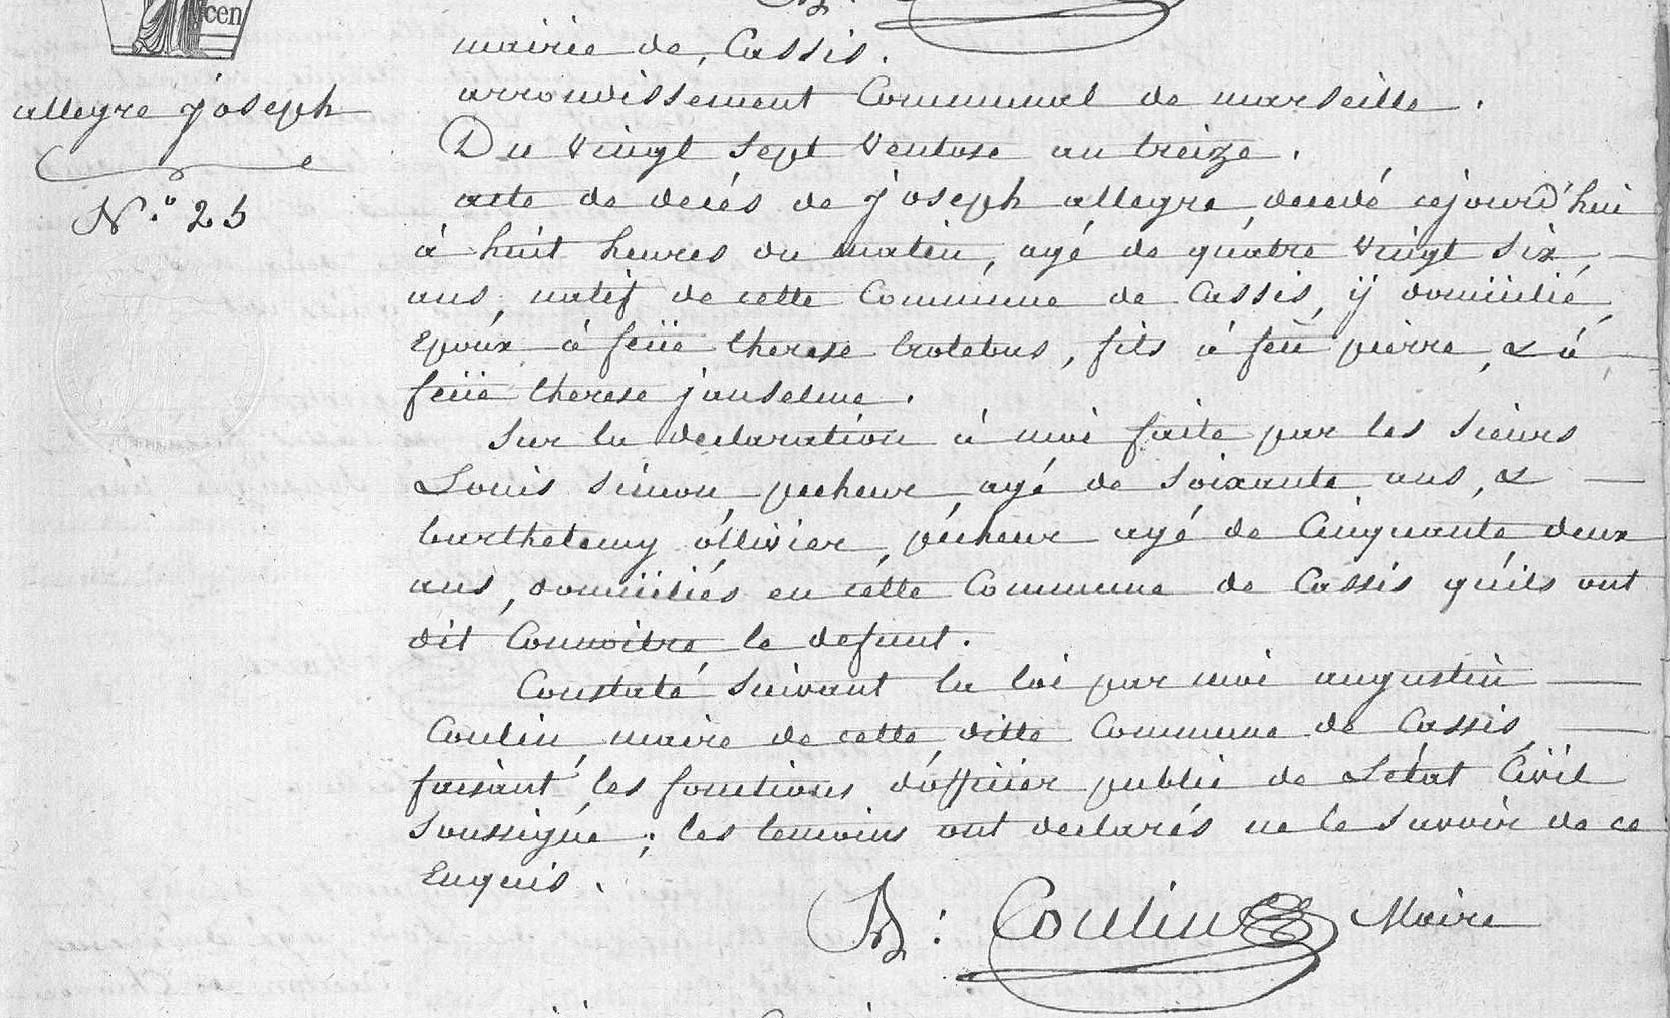 cen
mairie de Cassis.
arrondissement Communal de marseille.
Du vingt sept ventose an treize.
allegre joseph
N.º 25
acte de decés de joseph allegre, decedé cejourd'hui
à huit heures du matin, agé de quatre vingt six
ans, natif de cette Commune de Cassis, ÿ domicilié,
Epoux à feüe therese brotebus, fils à feü pierre, & à
feüe therese janselme.
Sur la declaration à moi faite par les sieurs
Louis simon, pecheur, agé de soixante ans, &
barthelemy ollivier, pécheur agé de Cinquante deux
ans, domiciliés en cétte Commune de Cassis qu'ils ont
dit Connoitre le defunt.
Constaté suivant la loi par moi augustin
Coulin, maire de cette ditte Commune de Cassis,
faisant les fonctions d'officier public de L'état Civil
soussigné; les temoins ont declarés ne le savoir de ce
Enquis.
A: Coulin Maire